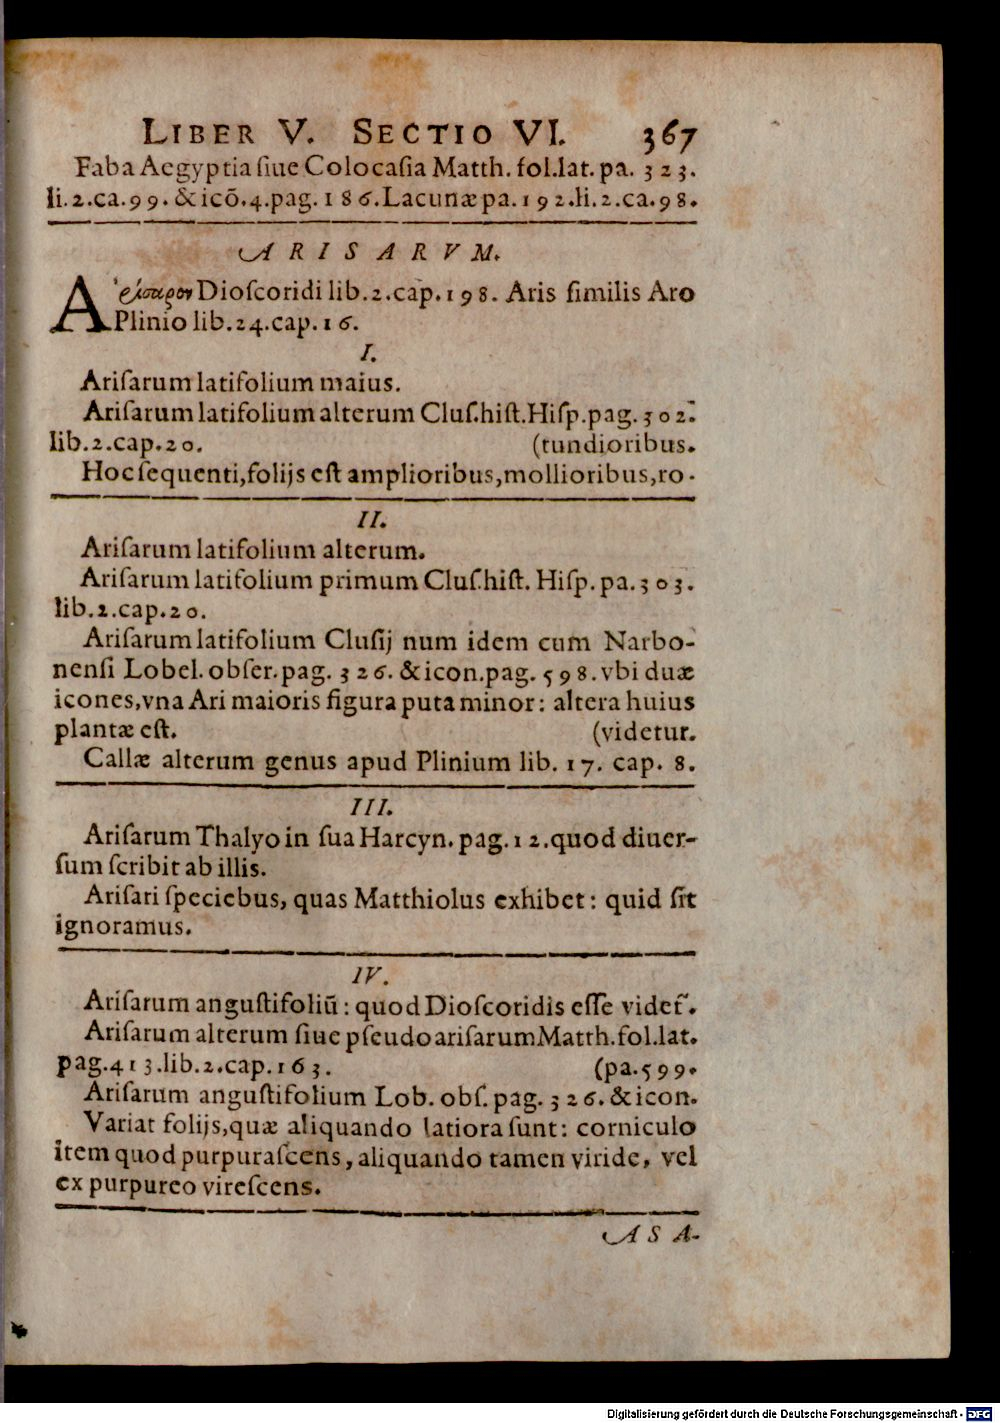 LIBER V. SECTIO VI. 367
Faba Aegyptia ſiue Colocaſia Matth. fol.lat. pa. 323.
li.2.ca.99. & icõ.4.pag.186.Lacunæ pa.192.li.2.ca.98.
ARISARVM.
Ἀρίσαρον Dioſcoridi lib.2.cap.198. Aris ſimilis Aro
Plinio lib.24.cap.16.
I.
Ariſarum latifolium maius.
Ariſarum latifolium alterum Cluſ.hiſt.Hiſp.pag.302.
lib.2.cap.20. (tundioribus.
Hoc ſequenti,folijs eſt amplioribus,mollioribus,ro-
II.
Ariſarum latifolium alterum.
Ariſarum latifolium primum Cluſ.hiſt. Hiſp. pa.303.
lib.2.cap.20.
Ariſarum latifolium Cluſij num idem cum Narbo-
nenſi Lobel. obſer.pag. 326. & icon.pag. 598. vbi duæ
icones,vna Ari maioris figura puta minor: altera huius
plantæ eſt. (videtur.
Callæ alterum genus apud Plinium lib. 17. cap. 8.
III.
Ariſarum Thalyo in ſua Harcyn. pag.12.quod diuer-
ſum ſcribit ab illis.
Ariſari ſpeciebus, quas Matthiolus exhibet: quid ſit
ignoramus.
IV.
Ariſarum anguſtifoliũ: quod Dioſcoridis eſſe videt᷑.
Ariſarum alterum ſiue pſeudoariſarum Matth.fol.lat.
pag.413.lib.2.cap.163. (pa.599.
Ariſarum anguſtifolium Lob. obſ. pag. 326. & icon.
Variat folijs,quæ aliquando latiora ſunt: corniculo
item quod purpuraſcens, aliquando tamen viride, vel
ex purpureo vireſcens.
ASA-
Digitalisierung gefördert durch die Deutsche Forschungsgemeinschaft - DFG